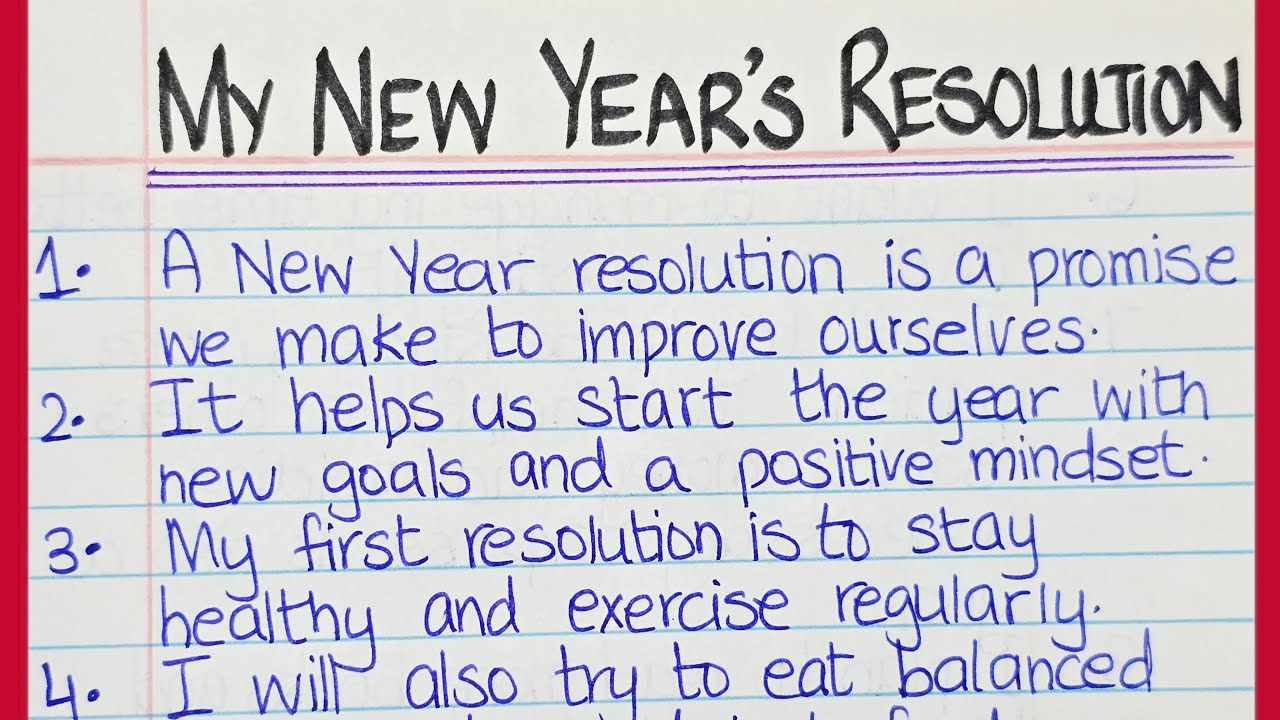 My New Year's Resolution
1. A New Year resolution is a promise
we make to improve ourselves.
2. It helps us start the year with
new goals and a positive mindset.
3. My first resolution is to stay
healthy and exercise regularly.
4. I will also try to eat balanced